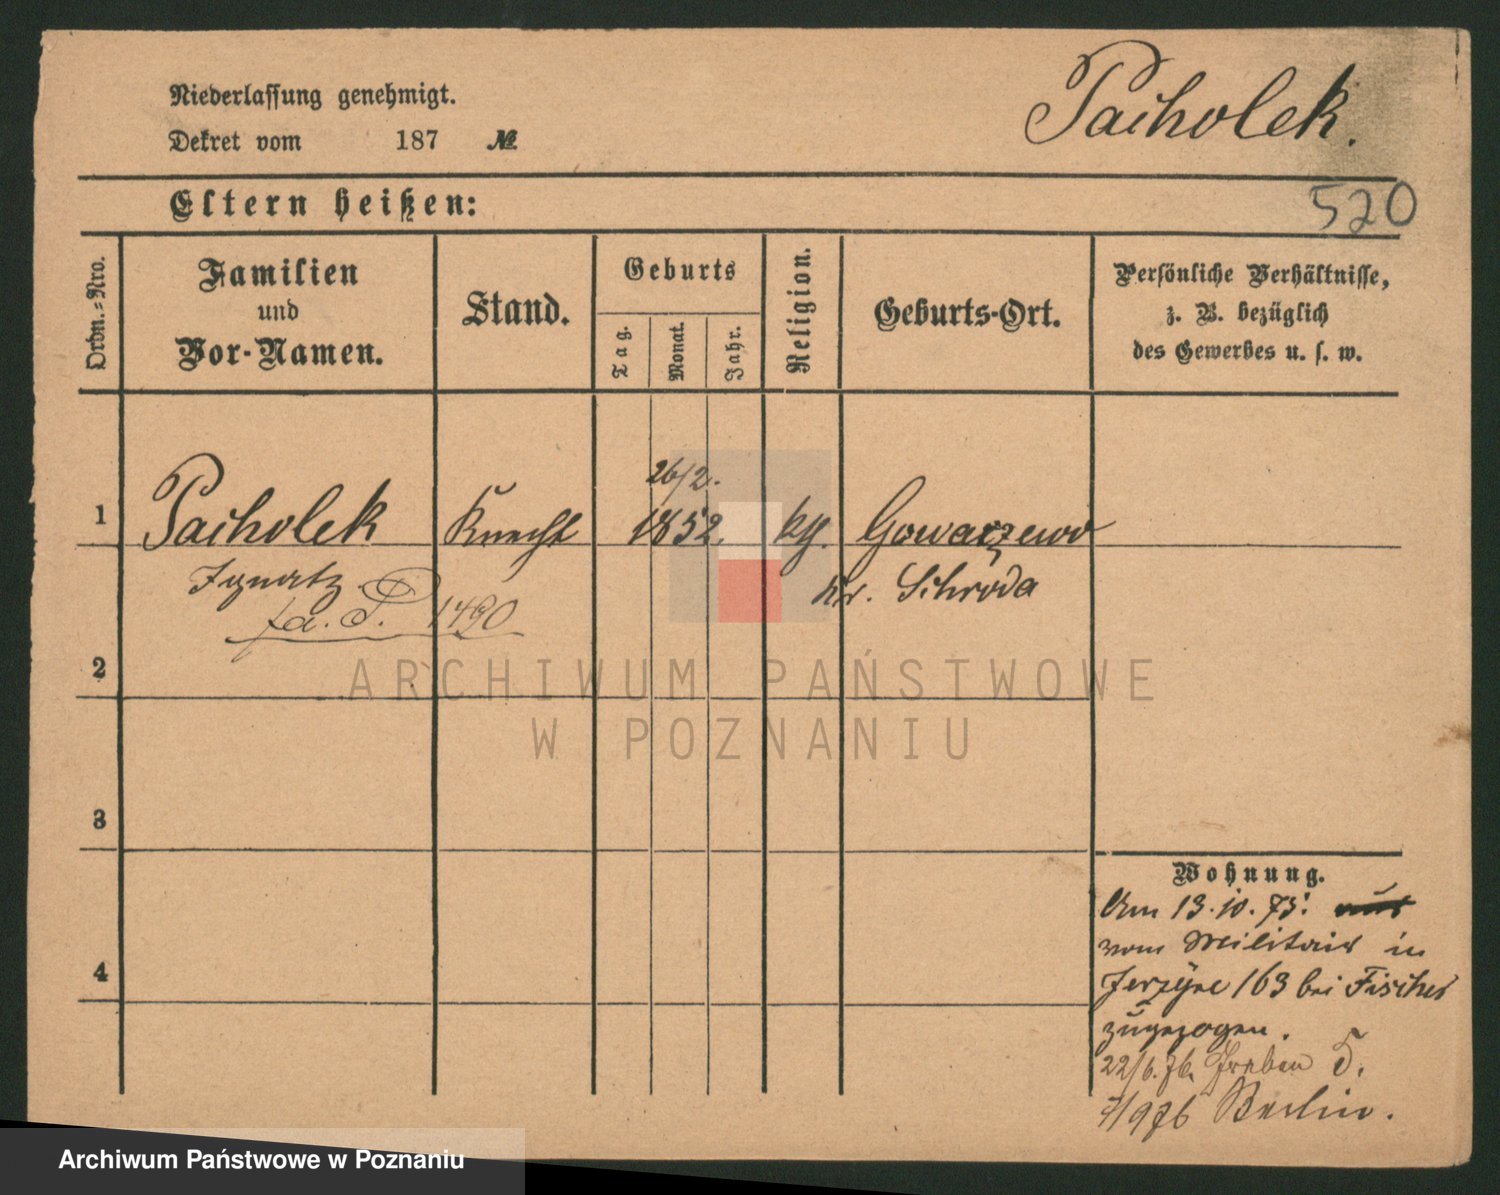 Niederlassung genehmigt.
Dekret vom 187 №
Pacholek.
Eltern heißen:
520
Ordn.=Nro.
Familien
und
Vor-Namen.
Stand.
Geburts
Tag.
Monat.
Jahr.
Religion.
Geburts-Ort.
Persönliche Verhältnisse,
z. B. bezüglich
des Gewerbes u. s. w.
26/2.
1 Pacholek Knecht 1852. kth. Gowarzewo
Ignatz Kr. Schroda
fa. P. 1490
2
ARCHIWUM PAŃSTWOWE
W POZNANIU
3
Wohnung.
Am 13.10.75.
vom Militair in
4
Jerzyce 163 bei Fischer
zugezogen.
22/6.76. Graben 5.
7/9 76 Berlin.
Archiwum Państwowe w Poznaniu